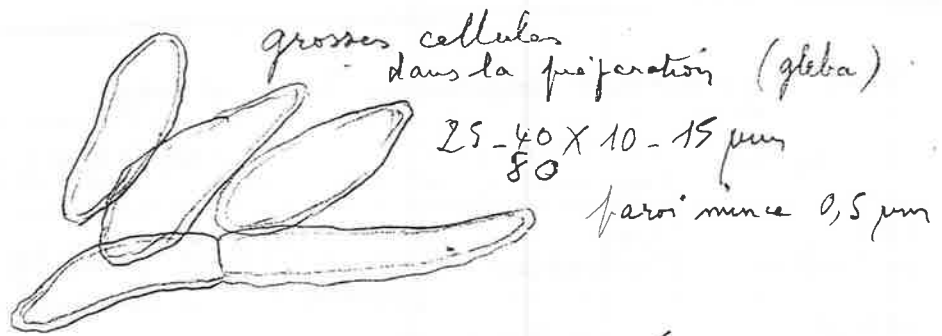 grosses cellules
dans la préparation (gleba)
25-40 X 10-15 µm
80
paroi mince 0,5 µm